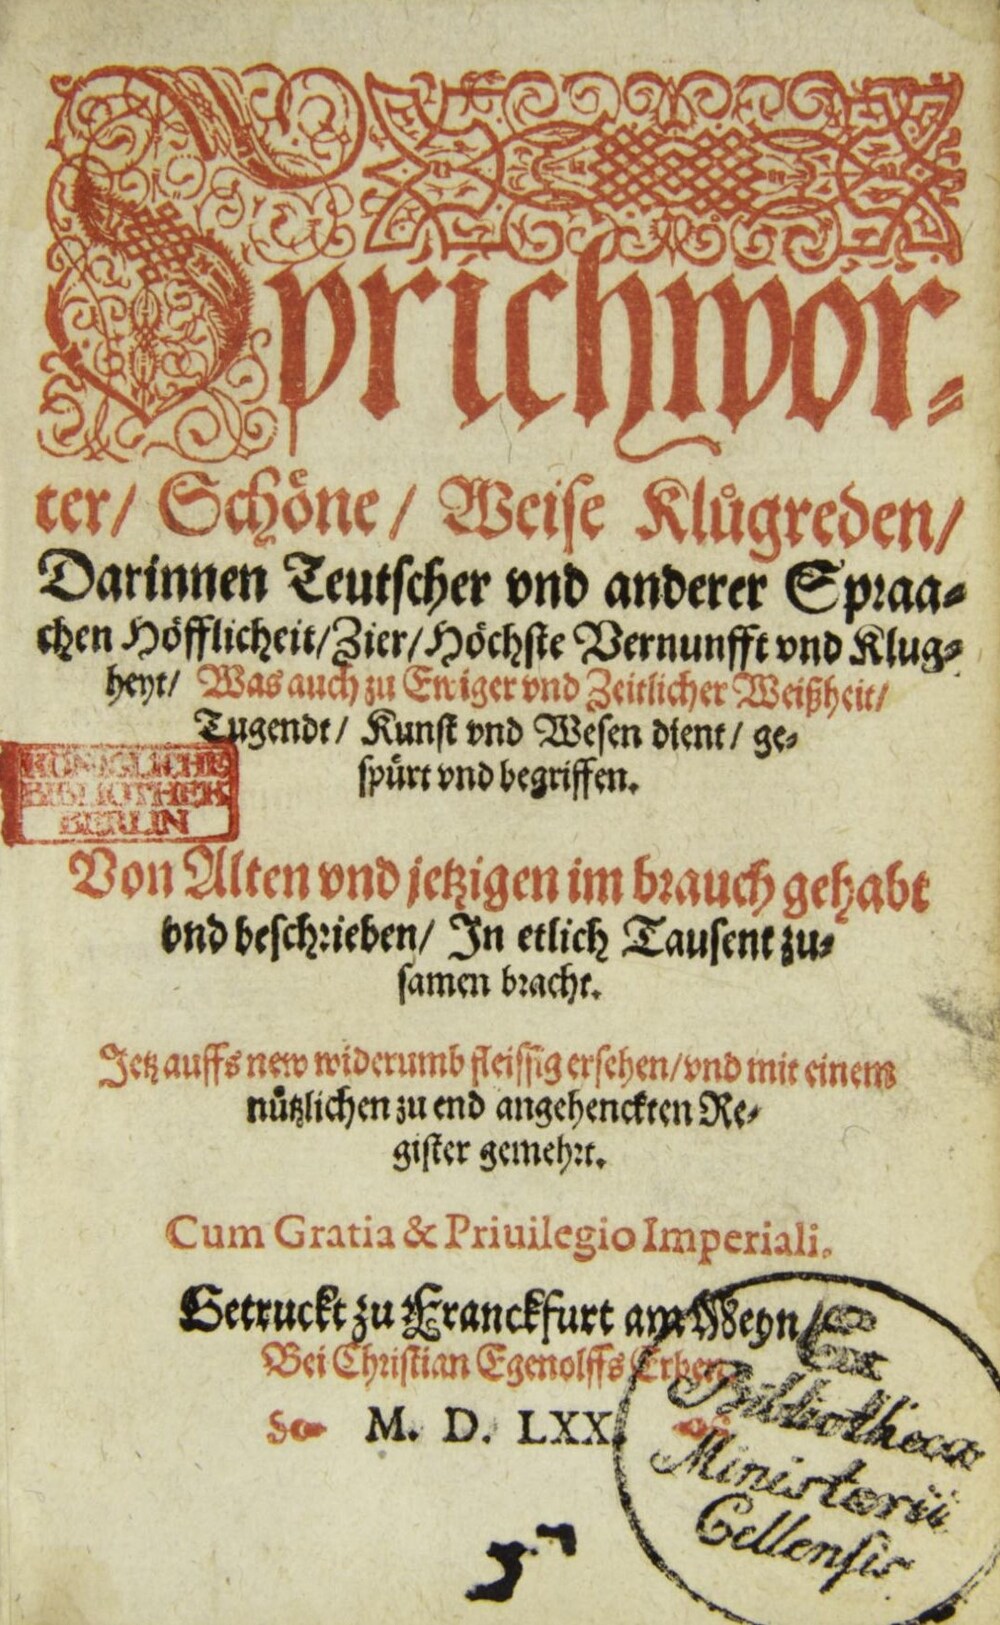 Sprichwör-
ter/ Schöne/ Weise Klůgreden/
Darinnen Teutscher vnd anderer Spraa-
chen Höfflicheit/ Zier/ Höchste Vernunfft vnd Klug-
heyt/ Was auch zu Ewiger vnd Zeitlicher Weißheit/
Tugendt/ Kunst vnd Wesen dient/ ge-
spürt vnd begriffen.
KÖNIGLICHE
BIBLIOTHEK
BERLIN
Von Alten vnd jetzigen im brauch gehabt
vnd beschrieben/ In etlich Tausent zu-
samen bracht.
Jetz auffs new widerumb fleissig ersehen/ vnd mit einem
nůtzlichen zu end angehenckten Re-
gister gemehrt.
Cum Gratia & Priuilegio Imperiali.
Getruckt zu Franckfurt am Meyn/
Bei Christian Egenolffs Erben.
M. D. LXX.
Ex
Bibliotheca
Ministerii
Cellensis